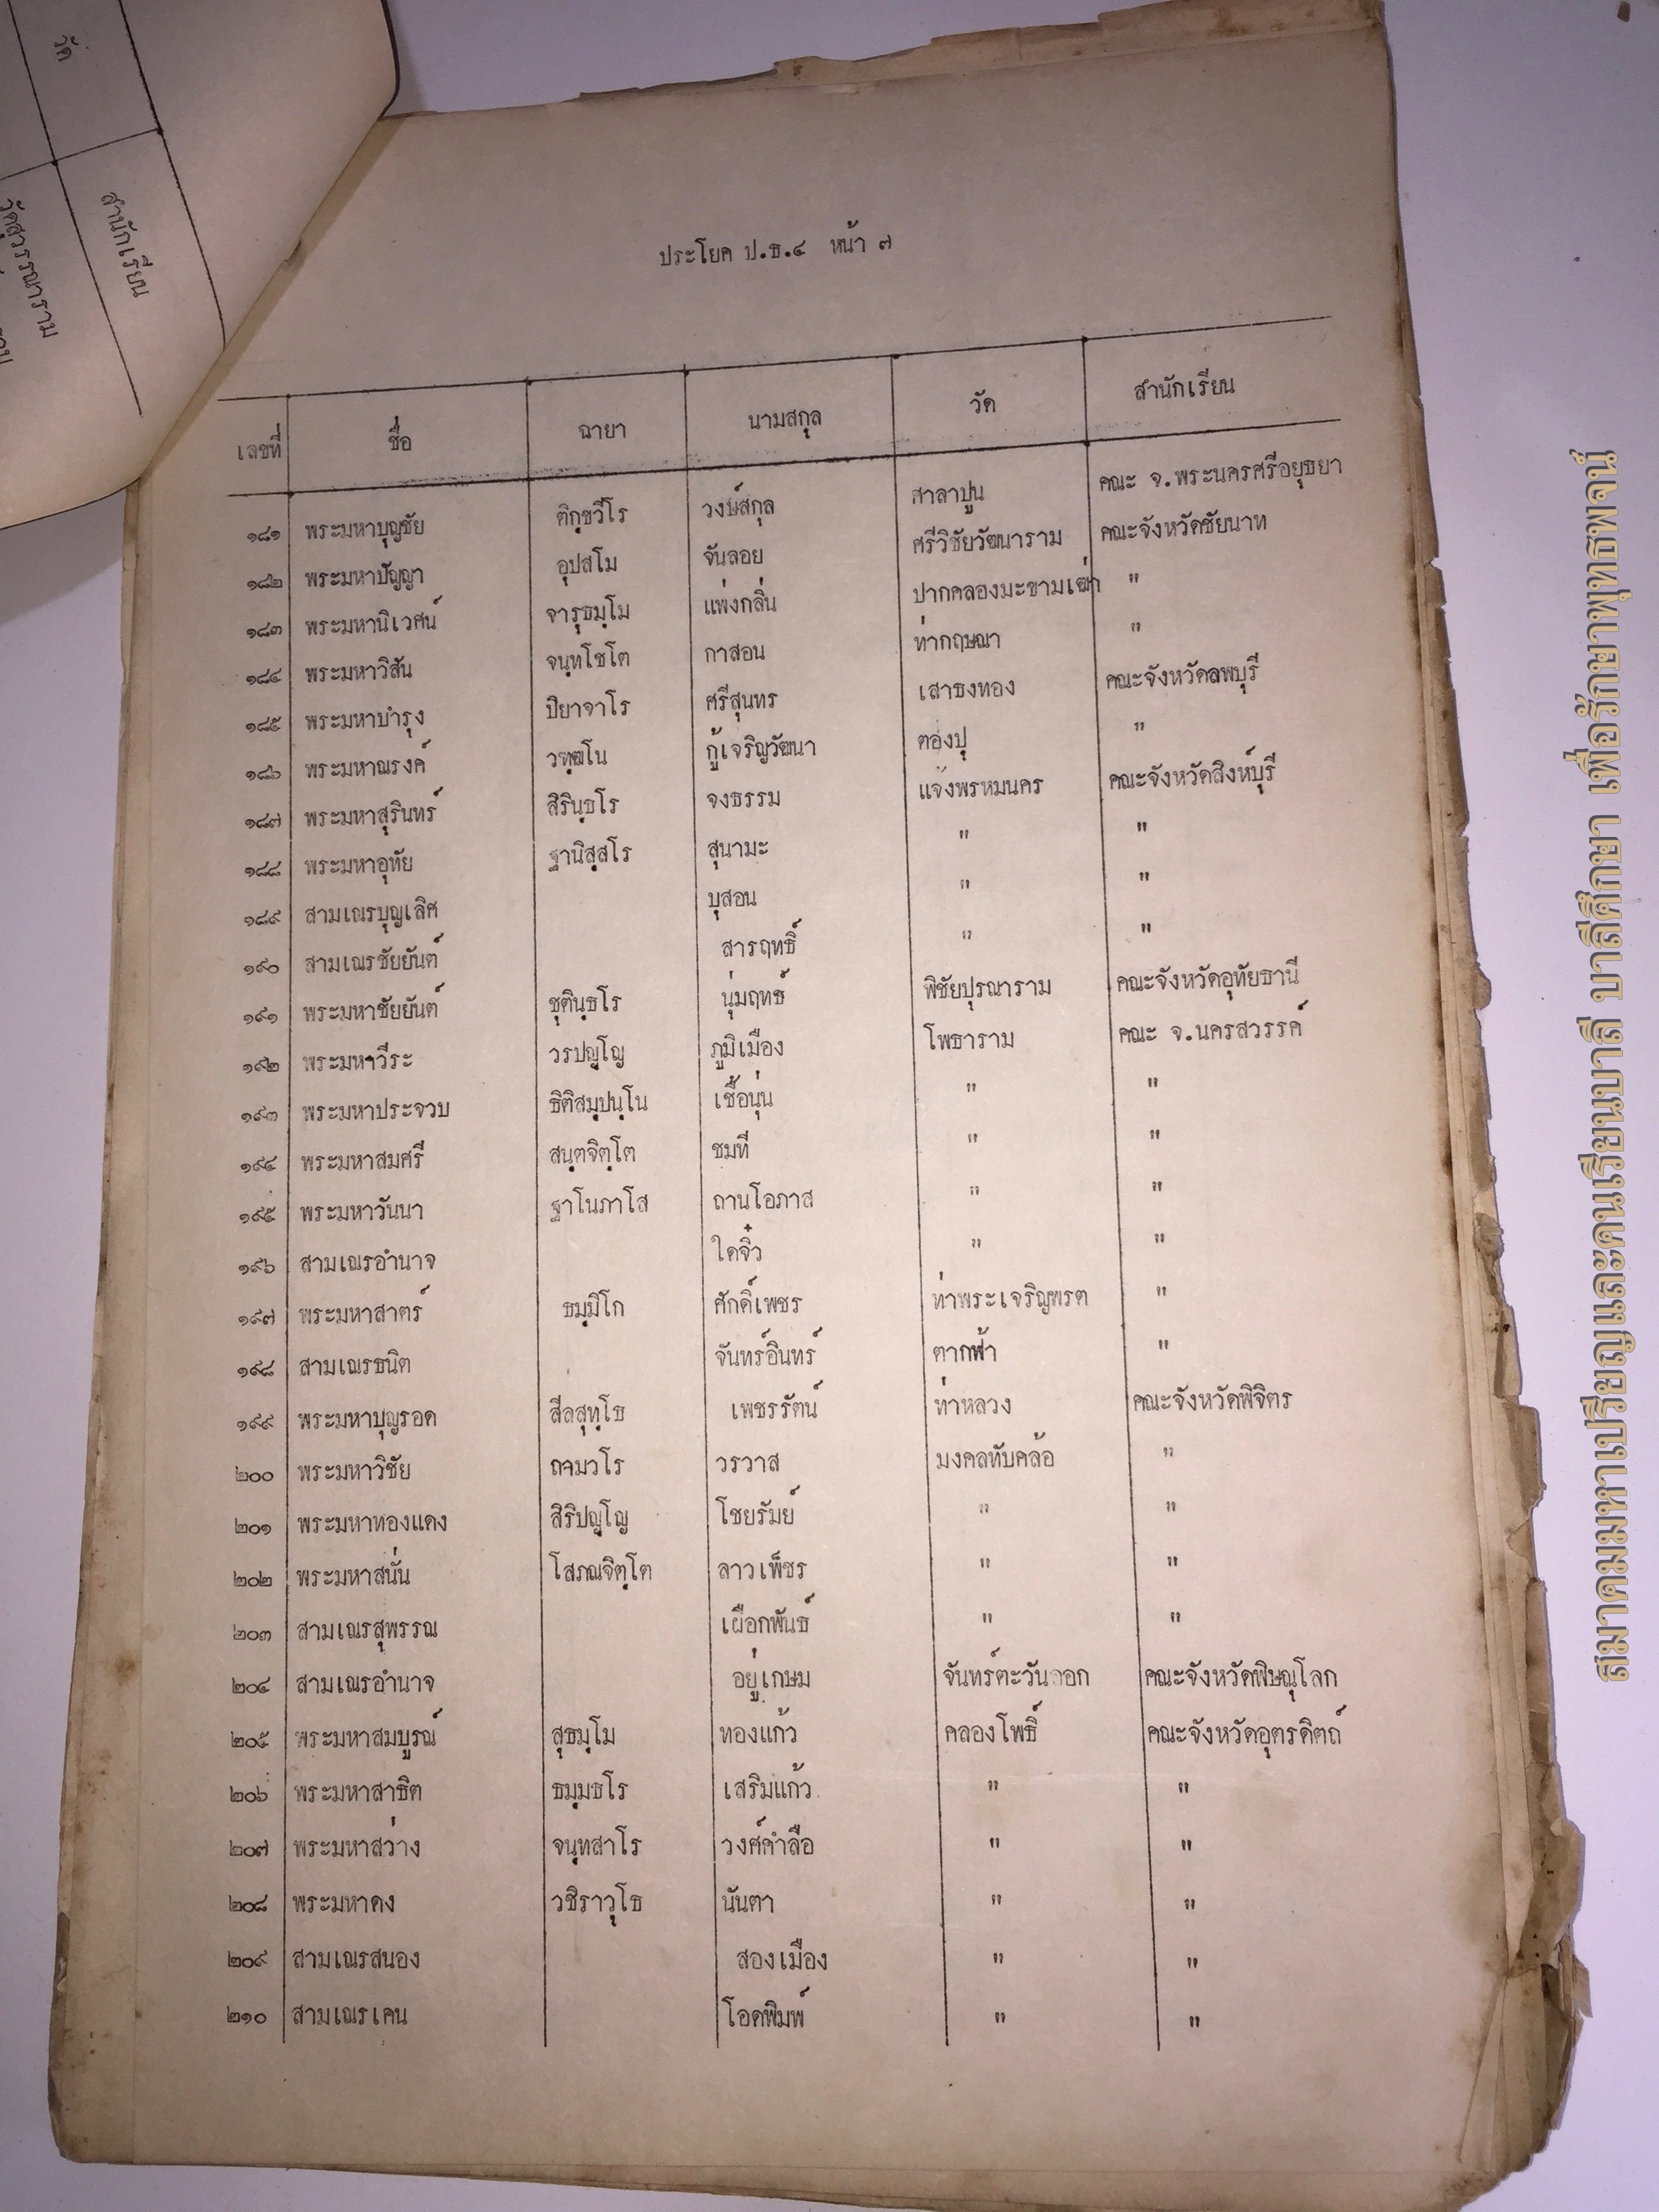 วัด
สำนักเรียน
วัดสุวรรณาราม
ประโยค ป.ธ.๔ หน้า ๗
เลขที่ ชื่อ ฉายา นามสกุล วัด สำนักเรียน
๑๘๑ พระมหาบุญชัย ติกฺขวีโร วงษ์สกุล ศาลาปูน คณะ จ.พระนครศรีอยุธยา
๑๘๒ พระมหาปัญญา อุปสโม จันลอย ศรีวิชัยวัฒนาราม คณะจังหวัดชัยนาท
๑๘๓ พระมหานิเวศน์ จารุธมฺโม แพ่งกลิ่น ปากคลองมะขามเฒ่า "
๑๘๔ พระมหาวิสัน จนฺทโชโต กาสอน ท่ากฤษณา "
๑๘๕ พระมหาบำรุง ปิยาจาโร ศรีสุนทร เสาธงทอง คณะจังหวัดลพบุรี
๑๘๖ พระมหาณรงค์ วฑฺฒโน กู้เจริญวัฒนา ตองปุ "
๑๘๗ พระมหาสุรินทร์ สิรินฺธโร จงธรรม แจ้งพรหมนคร คณะจังหวัดสิงห์บุรี
๑๘๘ พระมหาอุทัย ฐานิสฺสโร สุนามะ " "
๑๘๙ สามเณรบุญเลิศ บุสอน " "
๑๙๐ สามเณรชัยยันต์ สารฤทธิ์ " "
๑๙๑ พระมหาชัยยันต์ ชุตินฺธโร นุ่มฤทธ์ พิชัยปุรณาราม คณะจังหวัดอุทัยธานี
๑๙๒ พระมหาวีระ วรปญฺโญ ภูมิเมือง โพธาราม คณะ จ.นครสวรรค์
๑๙๓ พระมหาประจวบ ธิติสมฺปนฺโน เชื้อนุ่น " "
๑๙๔ พระมหาสมศรี สนฺตจิตฺโต ชมที " "
๑๙๕ พระมหาวันนา ฐาโนภาโส ถานโอภาส " "
๑๙๖ สามเณรอำนาจ ใดจิ๋ว " "
๑๙๗ พระมหาสาตร์ ธมฺมิโก ศักดิ์เพชร ท่าพระเจริญพรต "
๑๙๘ สามเณรธนิต จันทร์อินทร์ ตากฟ้า "
๑๙๙ พระมหาบุญรอด สีลสุทฺโธ เพชรรัตน์ ท่าหลวง คณะจังหวัดพิจิตร
๒๐๐ พระมหาวิชัย ถามวโร วรวาส มงคลทับคล้อ "
๒๐๑ พระมหาทองแดง สิริปญฺโญ โชยรัมย์ " "
๒๐๒ พระมหาสนั่น โสภณจิตฺโต ลาวเพ็ชร " "
๒๐๓ สามเณรสุพรรณ เผือกพันธ์ " "
๒๐๔ สามเณรอำนาจ อยู่เกษม จันทร์ตะวันออก คณะจังหวัดพิษณุโลก
๒๐๕ พระมหาสมบูรณ์ สุธมฺโม ทองแก้ว คลองโพธิ์ คณะจังหวัดอุตรดิตถ์
๒๐๖ พระมหาสาธิต ธมฺมธโร เสริมแก้ว " "
๒๐๗ พระมหาสว่าง จนฺทสาโร วงศ์คำลือ " "
๒๐๘ พระมหาคง วชิราวุโธ นันตา " "
๒๐๙ สามเณรสนอง สองเมือง " "
๒๑๐ สามเณรเคน โอดพิมพ์ " "
สมาคมมหาเปรียญและคนเรียนบาลี บาลีศึกษา เพื่อรักษาพุทธพจน์